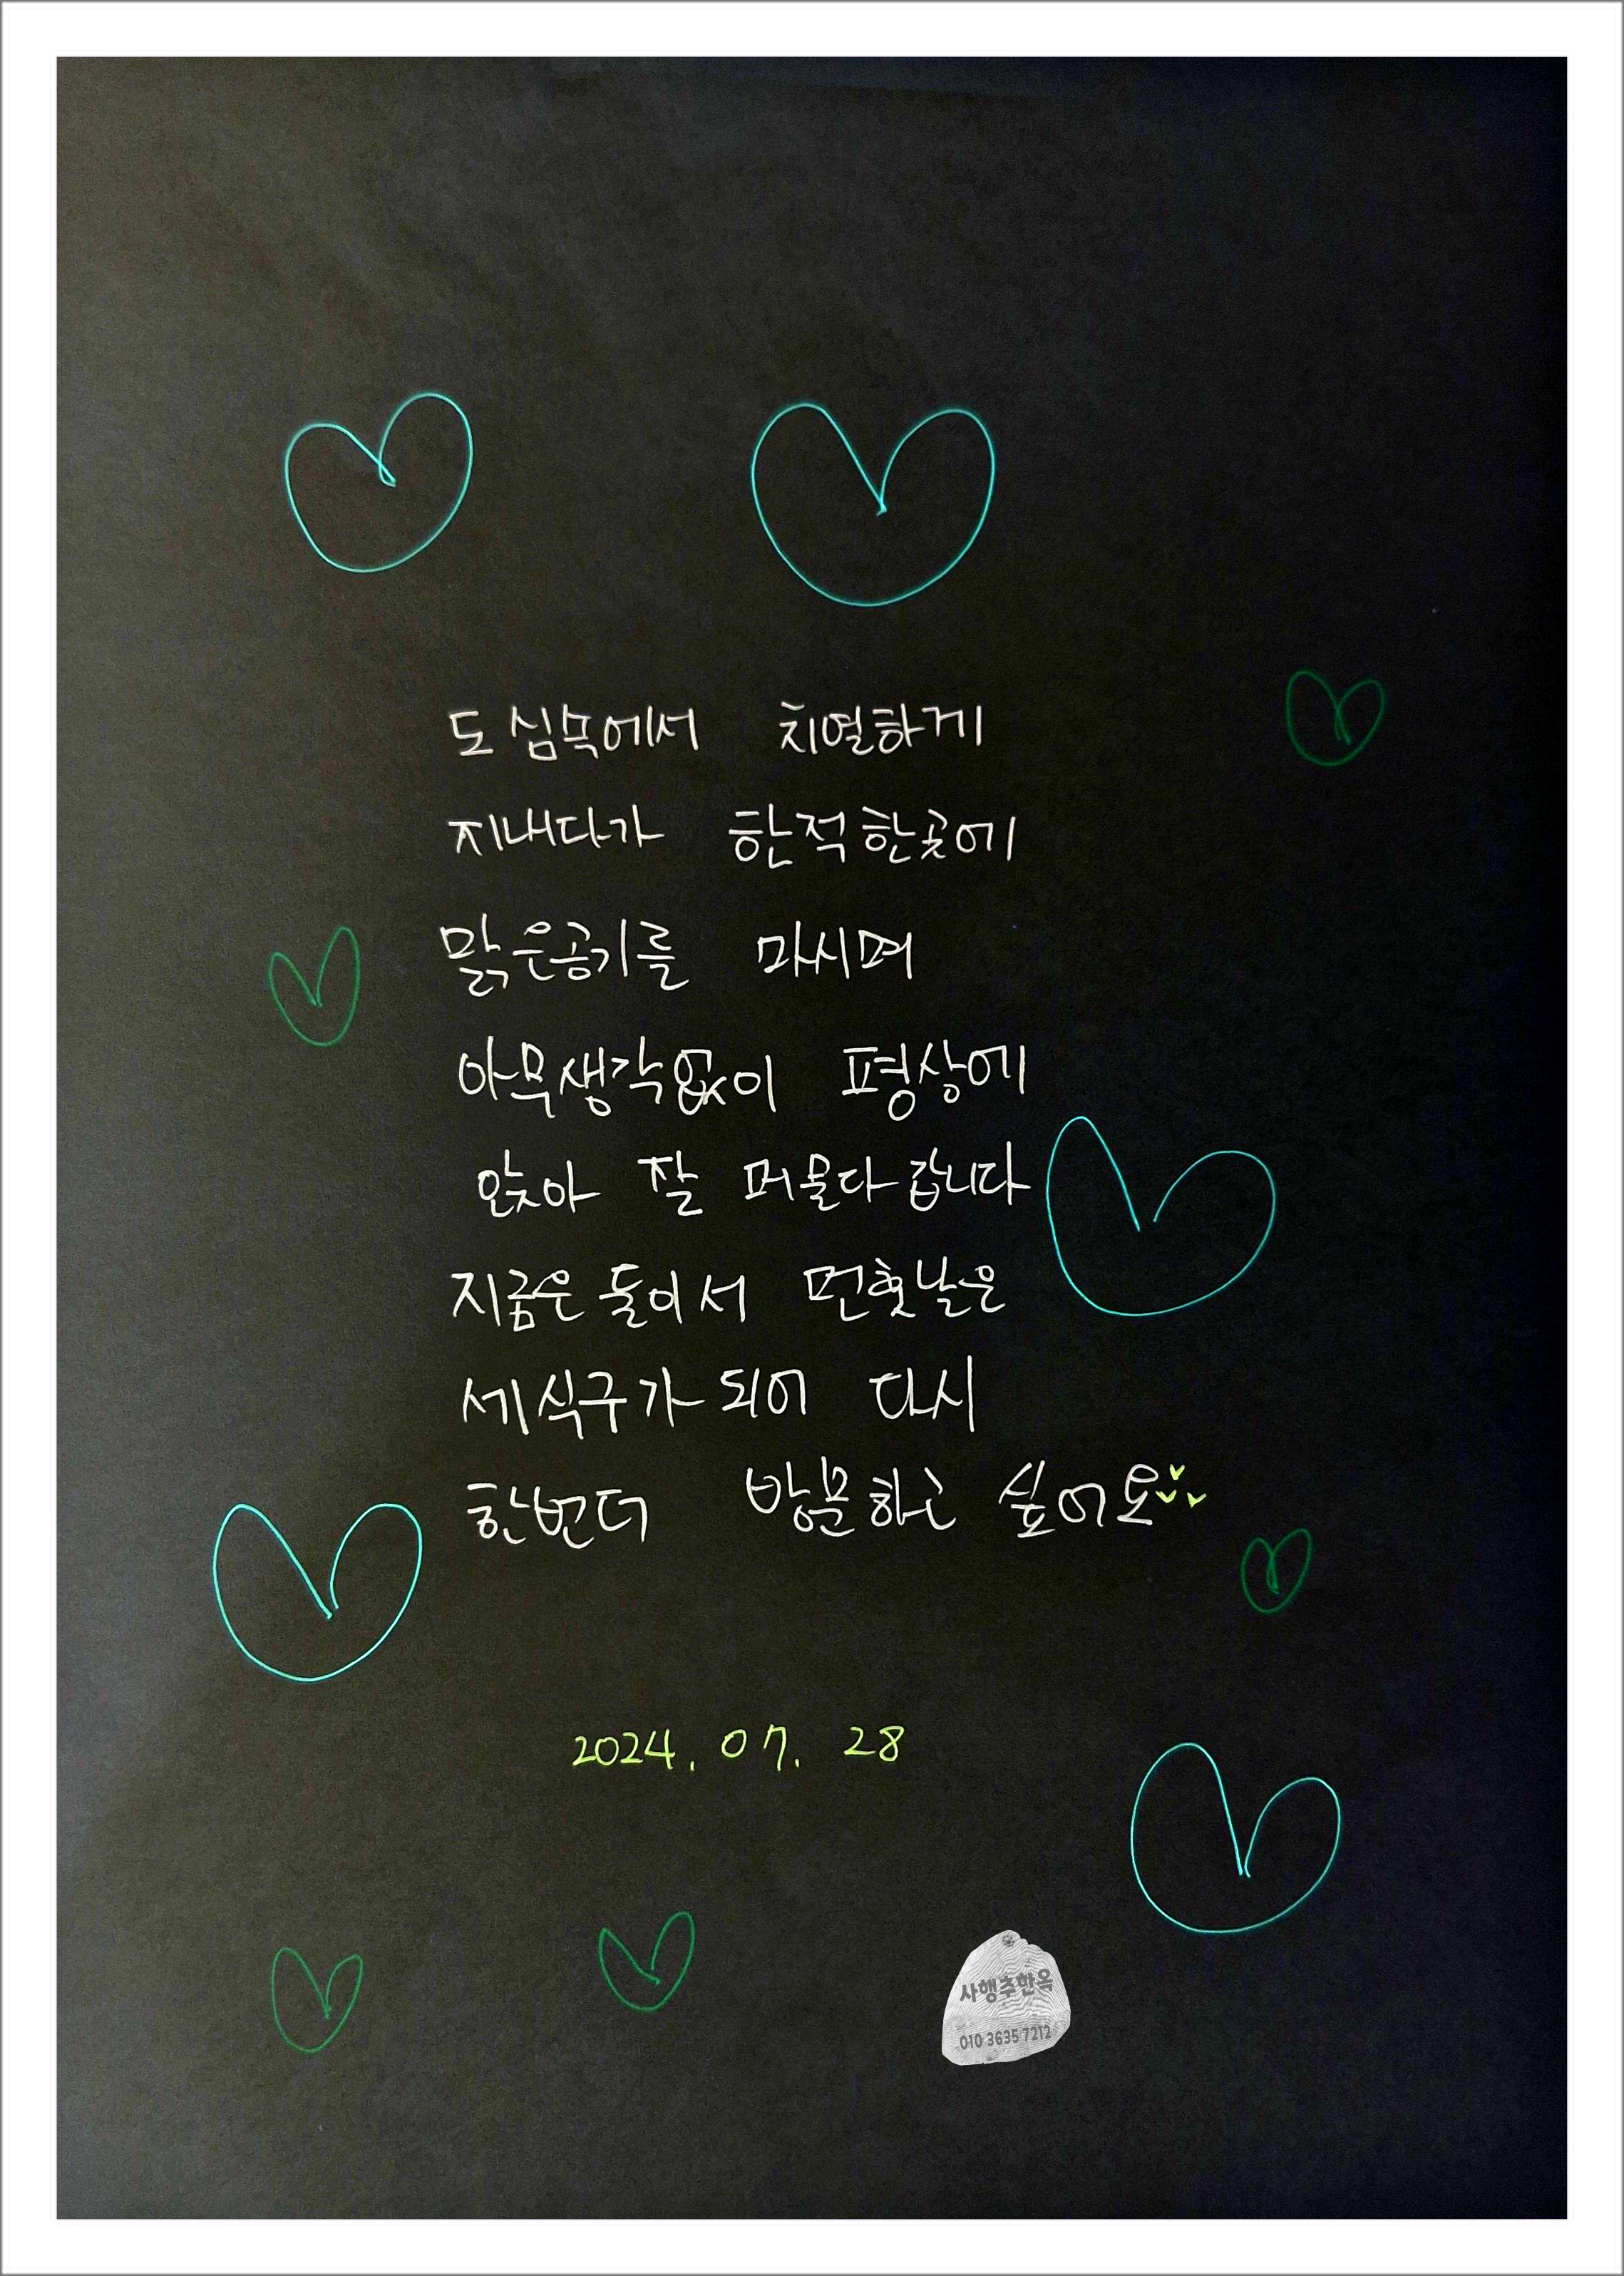 도심목에서 치열하게
지내다가 한적한곳에
맑은공기를 마시며
아무생각없이 평상에
앉아 잘 머물다 갑니다
지금은 둘이서 먼훗날은
세식구가 되어 다시
한번더 방문하고 싶어요
2024. 07. 28
사행추한옥
010 3635 7212